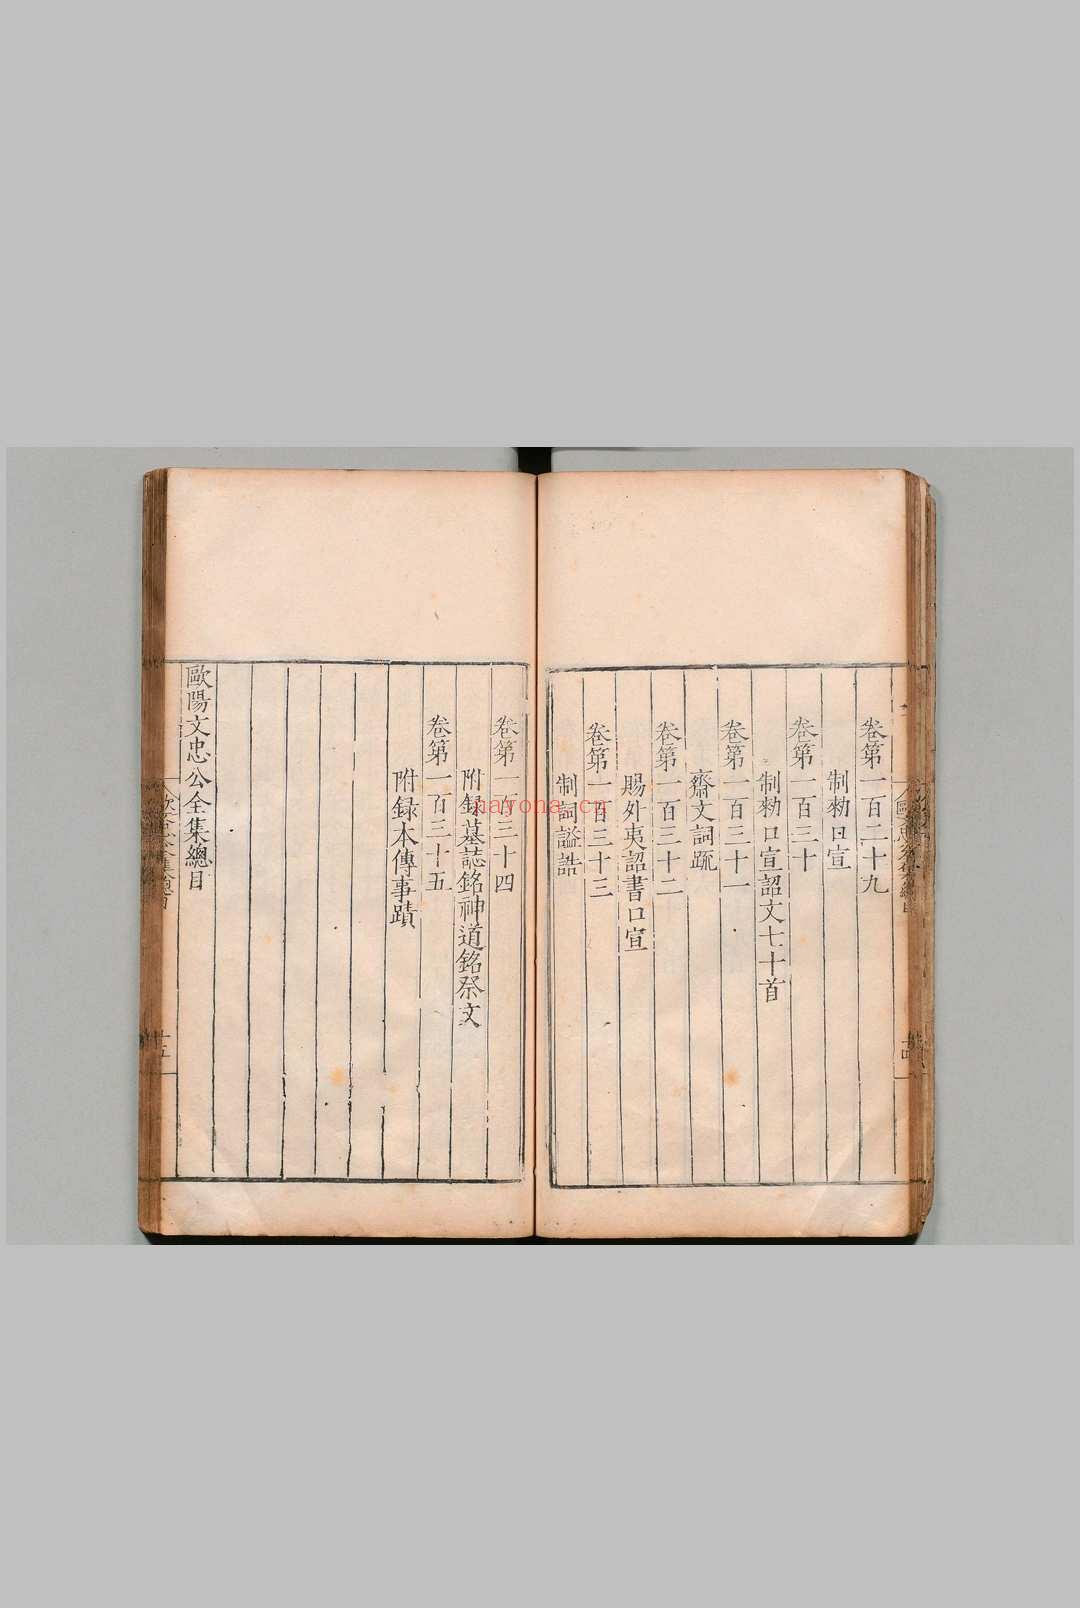 卷第一百二十九
制勑口宣
卷第一百三十
制勑口宣詔文七十首
卷第一百三十一
齋文詞䟽
卷第一百三十二
賜外夷詔書口宣
卷第一百三十三
制詞謚誥
卷第一百三十四
附録墓誌銘神道銘祭文
卷第一百三十五
附録本傳事蹟
歐陽文忠公全集總目
nayona.cn